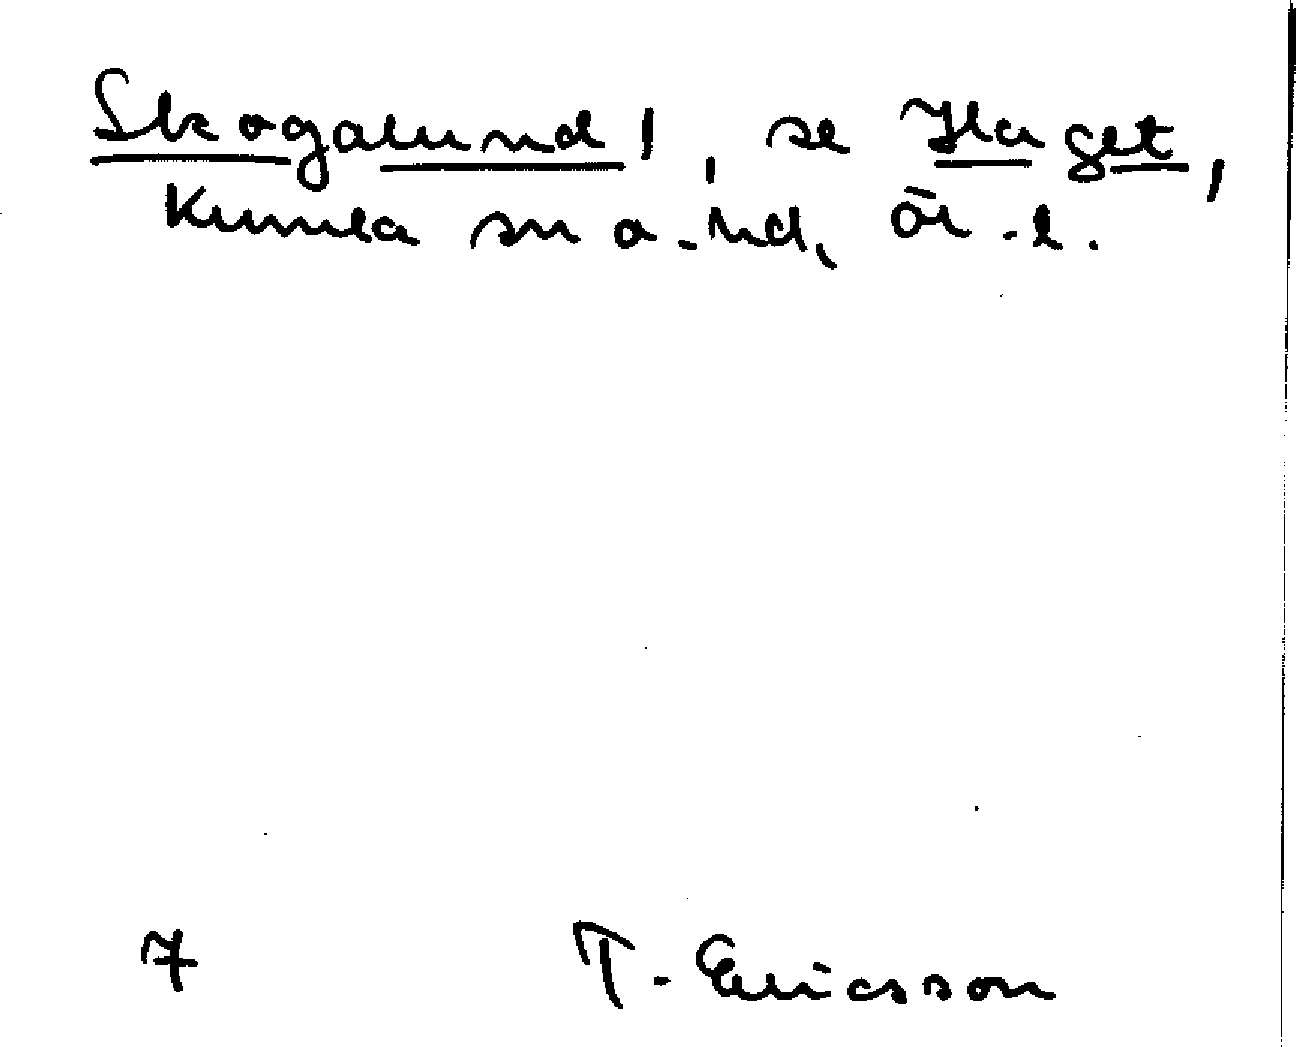 Skogalund!, se Haget,
Kumla sn o. hd, Ör. l.
7 T. Ericsson